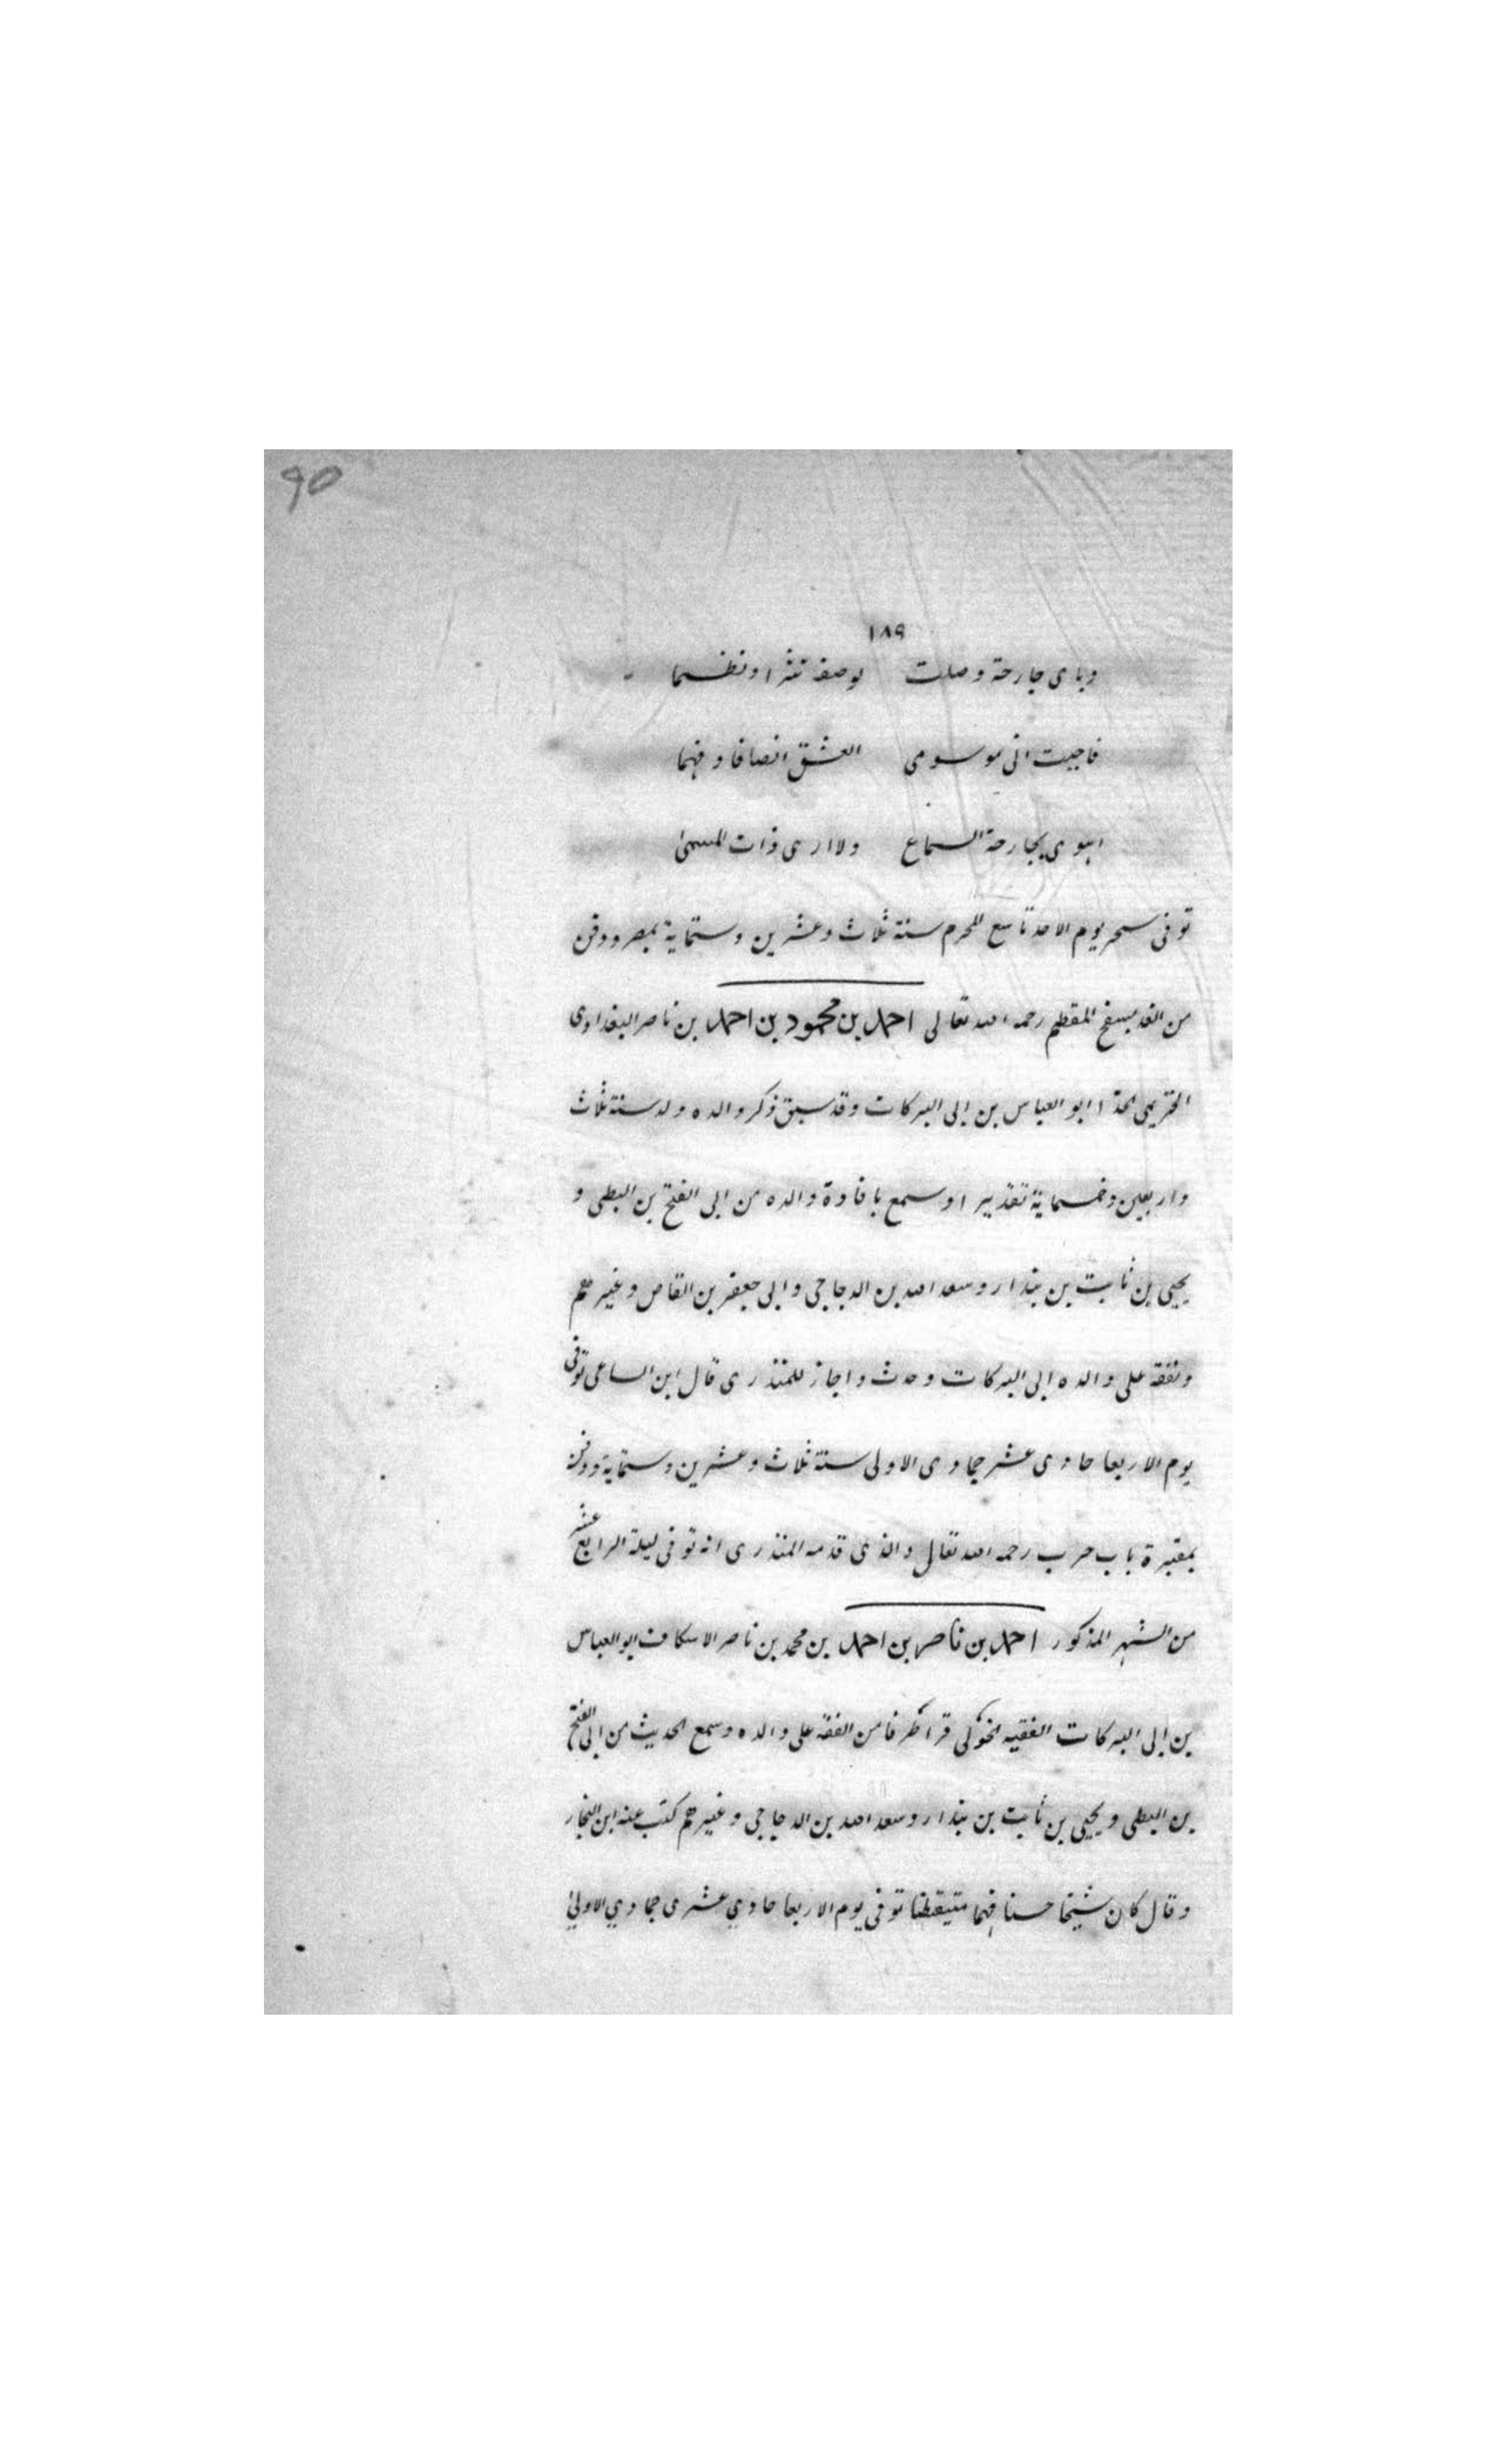 90
١٨٩
وباى جارحة وصلت بوصفه نثرا ونظما
فاجبت انى موسومى العشق انصافا وفهما
اهوى بجارحة السماع ولاارى ذات المسمى
توفى سحر يوم الاحد تاسع المحرم سنة ثلاث وعشرين وستماية بمصر ودفن
من الغد بسفح المقطم رحمه الله تعالى احمد بن محمود بن احمد بن ناصر البغدادى
الحريمى الحذا ابو العباس بن ابى البركات وقد سبق ذكر والده ولد سنة ثلاث
واربعين وخمسماية تقديرا وسمع بافادة والده من ابى الفتح بن البطى و
يحيى بن ثابت بن بندار وسعد الله بن الدجاجى وابى جعفر بن القاص وغيرهم
وتفقه على والده ابى البركات وحدث واجاز للمنذرى قال ابن الساعى توفى
يوم الاربعا حادى عشر جمادى الاولى سنة ثلاث وعشرين وستماية ودفن
بمقبرة باب حرب رحمه الله تعالى والذى قدمه المنذرى انه توفى ليلة الرابع عشر
من الشهر المذكور احمد بن ناصر بن احمد بن محمد بن ناصر الاسكاف ابو العباس
بن ابى البركات الفقيه قرا طرفا من الفقه على والده وسمع الحديث من ابى الفتح
بن البطى ويحيى بن ثابت بن بندار وسعد الله بن الدجاجى وغيرهم كتب عنه ابن النجار
وقال كان شيخا حسنا فهما متيقظا توفى يوم الاربعا حادي عشرى جمادي الاولى